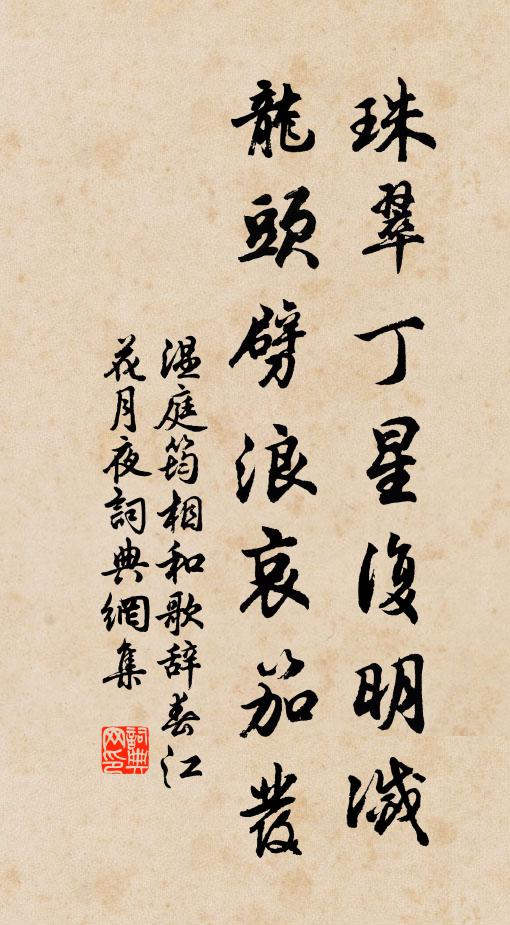 珠翠丁星復明滅
龍頭劈浪哀笳發
溫庭筠相和歌辞春江
花月夜詞典網集
詞典网印